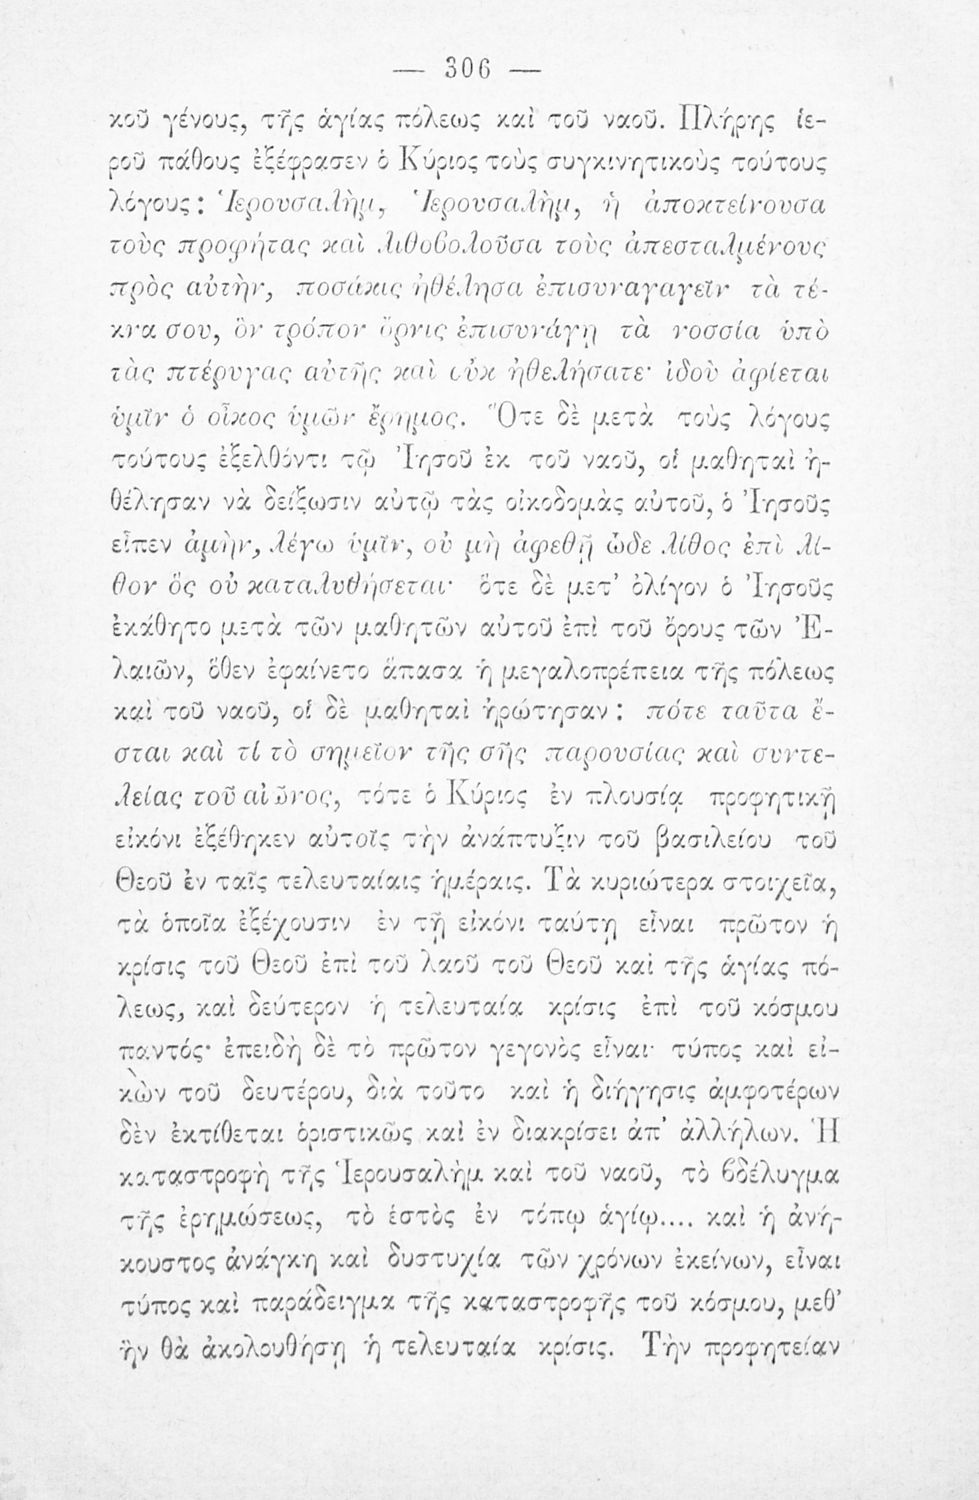 — 306 —
κοῦ γένους, τῆς ἁγίας πόλεως καὶ τοῦ ναοῦ. Πλήρης ἱε-
ροῦ πάθους ἐξέφρασεν ὁ Κύριος τοὺς συγκινητικοὺς τούτους
λόγους: Ἱερουσαλὴμ, Ἱερουσαλὴμ, ἡ ἀποκτείνουσα
τοὺς προφήτας καὶ λιθοβολοῦσα τοὺς ἀπεσταλμένους
πρὸς αὐτὴν, ποσάκις ἠθέλησα ἐπισυναγαγεῖν τὰ τέ-
κνα σου, ὃν τρόπον ὄρνις ἐπισυνάγῃ τὰ νοσσία ὑπὸ
τὰς πτέρυγας αὐτῆς καὶ οὐκ ἠθελήσατε· ἰδοὺ ἀφίεται
ὑμῖν ὁ οἶκος ὑμῶν ἔρημος. Ὅτε δὲ μετὰ τοὺς λόγους
τούτους ἐξελθόντι τῷ Ἰησοῦ ἐκ τοῦ ναοῦ, οἱ μαθηταὶ ἠ-
θέλησαν νὰ δείξωσιν αὐτῷ τὰς οἰκοδομὰς αὐτοῦ, ὁ Ἰησοῦς
εἶπεν ἀμὴν, λέγω ὑμῖν, οὐ μὴ ἀφεθῇ ὧδε λίθος ἐπὶ λί-
θον ὃς οὐ καταλυθήσεται· ὅτε δὲ μετ’ ὀλίγον ὁ Ἰησοῦς
ἐκάθητο μετὰ τῶν μαθητῶν αὐτοῦ ἐπὶ τοῦ ὄρους τῶν Ἐ-
λαιῶν, ὅθεν ἐφαίνετο ἅπασα ἡ μεγαλοπρέπεια τῆς πόλεως
καὶ τοῦ ναοῦ, οἱ δὲ μαθηταὶ ἠρώτησαν: πότε ταῦτα ἔ-
σται καὶ τί τὸ σημεῖον τῆς σῆς παρουσίας καὶ συντε-
λείας τοῦ αἰῶνος, τότε ὁ Κύριος ἐν πλουσίᾳ προφητικῇ
εἰκόνι ἐξέθηκεν αὐτοῖς τὴν ἀνάπτυξιν τοῦ βασιλείου τοῦ
Θεοῦ ἐν ταῖς τελευταίαις ἡμέραις. Τὰ κυριώτερα στοιχεῖα,
τὰ ὁποῖα ἐξέχουσιν ἐν τῇ εἰκόνι ταύτῃ εἶναι πρῶτον ἡ
κρίσις τοῦ Θεοῦ ἐπὶ τοῦ λαοῦ τοῦ Θεοῦ καὶ τῆς ἁγίας πό-
λεως, καὶ δεύτερον ἡ τελευταία κρίσις ἐπὶ τοῦ κόσμου
παντός· ἐπειδὴ δὲ τὸ πρῶτον γεγονὸς εἶναι τύπος καὶ εἰ-
κὼν τοῦ δευτέρου, διὰ τοῦτο καὶ ἡ διήγησις ἀμφοτέρων
δὲν ἐκτίθεται ὁριστικῶς καὶ ἐν διακρίσει ἀπ’ ἀλλήλων. Ἡ
καταστροφὴ τῆς Ἱερουσαλὴμ καὶ τοῦ ναοῦ, τὸ βδέλυγμα
τῆς ἐρημώσεως, τὸ ἑστὸς ἐν τόπῳ ἁγίῳ.... καὶ ἡ ἀνή-
κουστος ἀνάγκη καὶ δυστυχία τῶν χρόνων ἐκείνων, εἶναι
τύπος καὶ παράδειγμα τῆς καταστροφῆς τοῦ κόσμου, μεθ’
ἣν θὰ ἀκολουθήσῃ ἡ τελευταία κρίσις. Τὴν προφητείαν